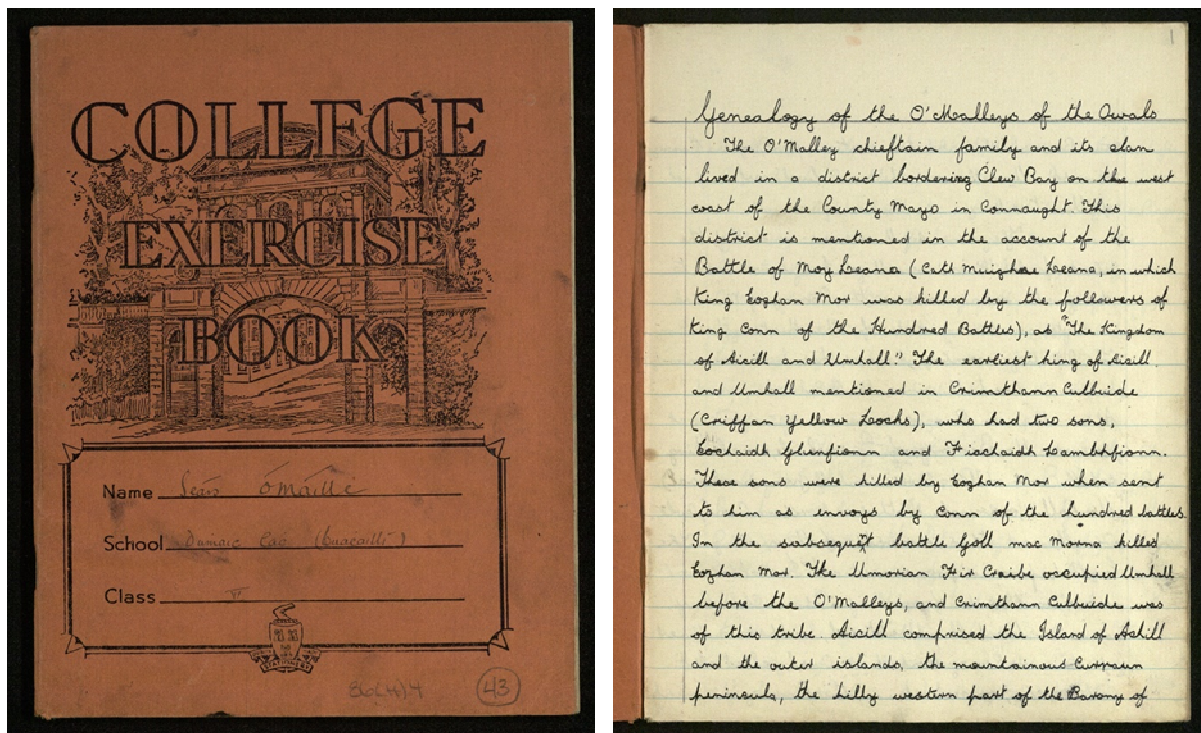 COLLEGE
EXERCISE
BOOK
Name Seán ÓMáille
School Dumaic Éao (buacaillí)
Class V
86(4)4
43
1
Genealogy of the O'Malleys of the Owals
The O'Malley chieftain family and its clan
lived in a district bordering Clew Bay on the west
coast of the County Mayo in Connaught. This
district is mentioned in the account of the
Battle of Moy Leana (Catt Muighae Leana, in which
King Eoghan Mor was killed by the followers of
King Conn of the Hundred Battles), as "The Kingdom
of Aicill and Umhall." The earliest king of Aicill
and Umhall mentioned in Crimthann Culbuide
(Criffan Yellow Locks), who had two sons,
Eochaidh Glunfionn and Fiachaidh Lambhfionn.
These sons were killed by Eoghan Mor when sent
to him as envoys by Conn of the hundred battles.
In the subsequet battle Goll mac Morna killed
Eoghan Mor. The Umorian Fir Craibe occupied Umhall
before the O'Malleys, and Crimthann Culbuide was
of this tribe. Aicill comprised the Island of Achill
and the outer islands, the mountainous Curraun
peninsula, the hilly western part of the Barony of